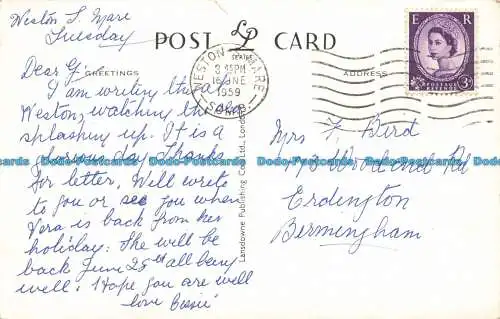 Weston S. Mare
Tuesday
POST CARD
LP
GREETINGS
ADDRESS
WESTON MARE
3 15PM
16 JNE
1959
SOM
E R
POSTAGE REVENUE
3D
Dear G
I am writing this at
Weston, watching the
splashing up. It is a
glorious day. Thanks
for letter, Will write
to you or see you when
Vera is back from her
holiday. She will be
back June 25th all being
well. I Hope you are well
love Bessie
Mrs F. Bird
Rd
Erdington
Bermingham
Lansdowne Publishing Co., Ltd., London
Postcards Dodo Postcards Dodo Postcards Dodo Postcards Dodo Postcards